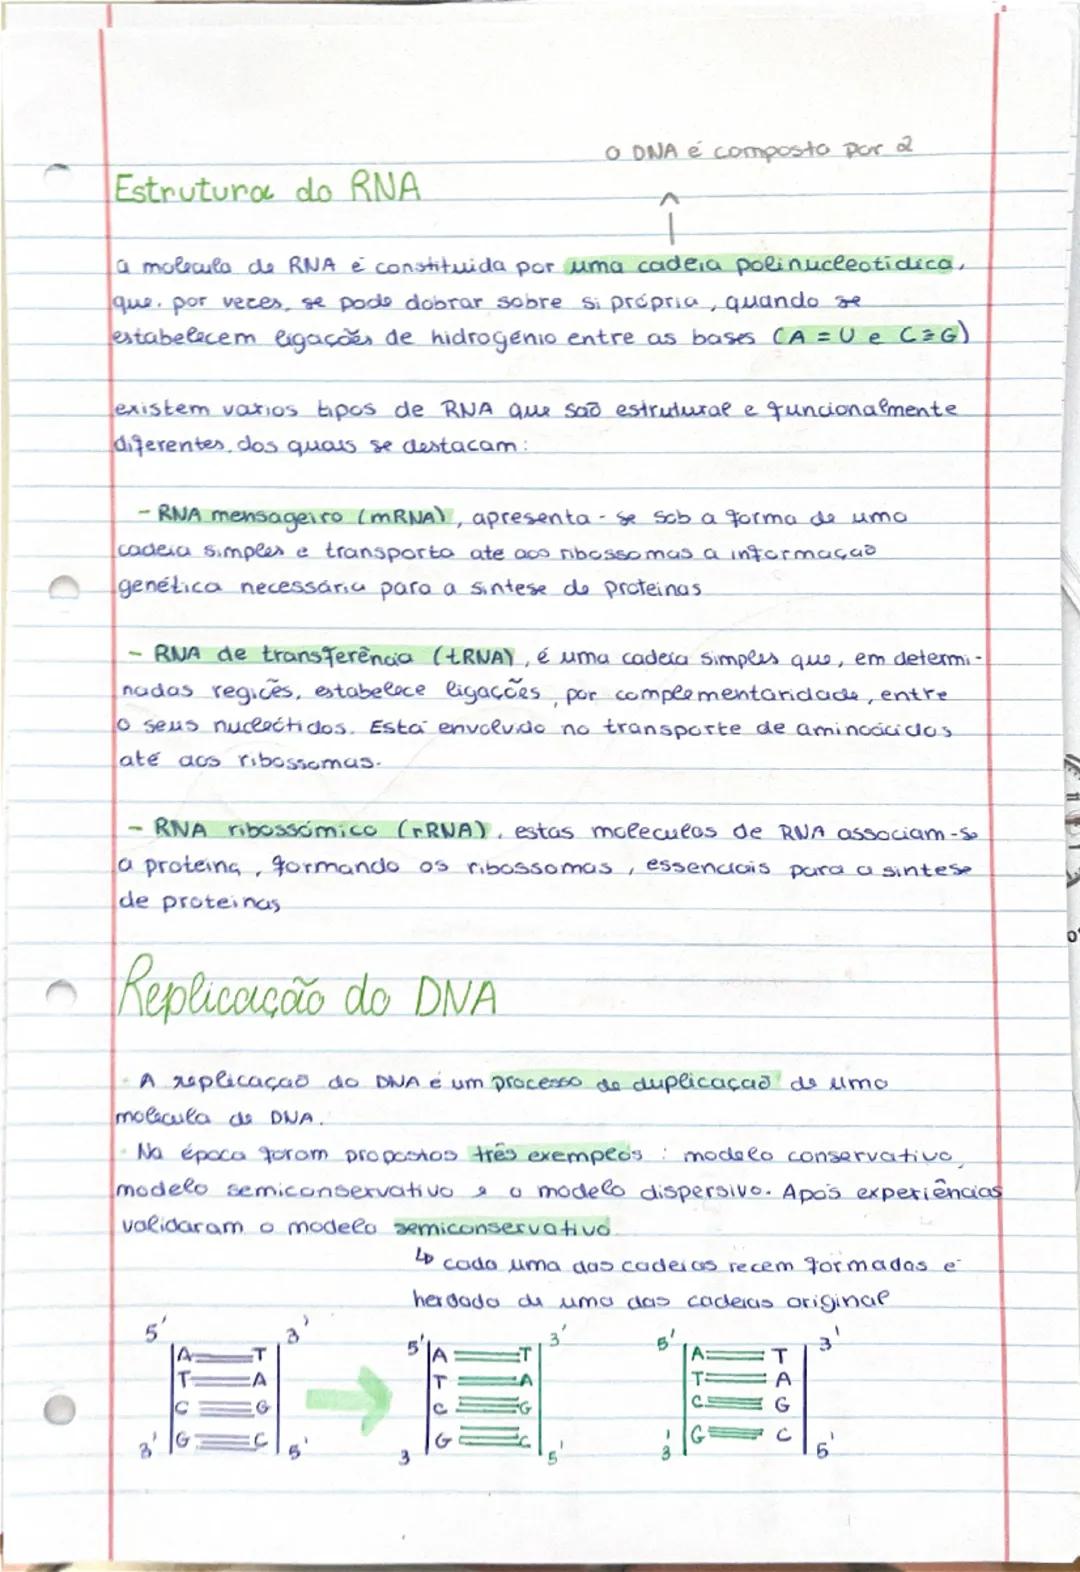 o DNA é composto por 2
Estrutura do RNA
a molecula de RNA é constituida por uma cadeia polinucleotidica,
que, por vezes, se pode dobrar sobre si própria, quando se
estabelecem ligações de hidrogénio entre as bases (A = U e C≡G)
existem varios tipos de RNA que são estrutural e funcionalmente
diferentes, dos quais se destacam:
- RNA mensageiro (mRNA), apresenta - se sob a forma de uma
cadeia simples e transporta ate aos ribossomas a informação
genética necessária para a sintese de proteinas
- RNA de transferência (tRNA), é uma cadeia simples que, em determi-
nadas regiões, estabelece ligações, por complementaridade, entre
o seus nucleótidos. Está envolvido no transporte de aminoácidos
até aos ribossomas.
- RNA ribossómico (rRNA), estas moleculas de RNA associam-se
a proteina, formando os ribossomas, essenciais para a sintese
de proteinas
Replicação do DNA
- A replicação do DNA é um processo de duplicação de uma
molecula de DNA.
- Na época foram propostos três exemplos: modelo conservativo,
modelo semiconservativo e o modelo dispersivo. Após experiências
validaram o modelo semiconservativo
↳ cada uma das cadeias recem formadas é
herdada de uma das cadeias original
5' 3' 5' 3' 5' 3'
A T A T A T
T A T A T A
C G C G C G
G C G C G C
3' 5' 3 5' 3' 5'